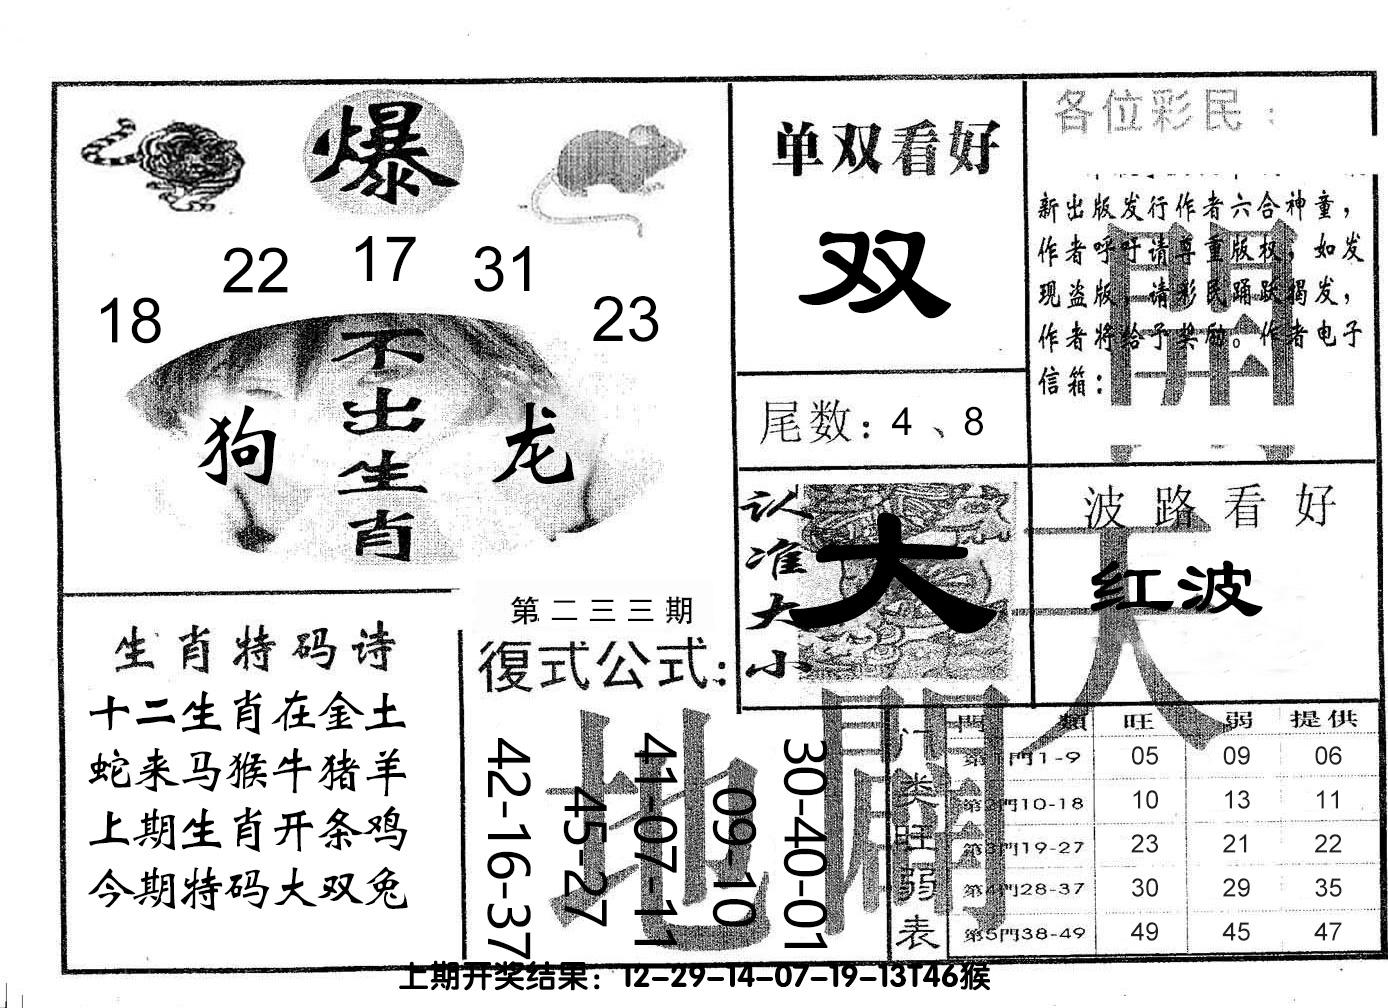 爆
18 22 17 31 23
不出生肖
狗 龙
单双看好
双
尾数：4、8
各位彩民：
新出版发行作者六合神童，
作者呼吁请尊重版权，如发
现盗版，请彩民踊跃揭发，
作者将给予奖励。作者电子
信箱：
認准大小
大
波路看好
红波
天
開
地
生肖特码诗
十二生肖在金土
蛇来马猴牛猪羊
上期生肖开条鸡
今期特码大双兔
第二三三期
復式公式：
42-16-37
45-27
41-07-11
09-10
30-40-01
门类旺弱表
門類 旺 弱 提供
第1門1-9 05 09 06
第2門10-18 10 13 11
第3門19-27 23 21 22
第4門28-37 30 29 35
第5門38-49 49 45 47
上期开奖结果：12-29-14-07-19-13T46猴